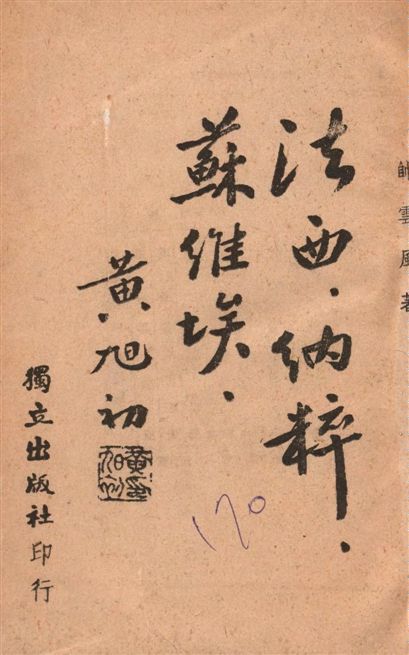 帥雲風著
法西·納粹·
蘇維埃·
黃旭初
黃旭初
獨立出版社印行
170